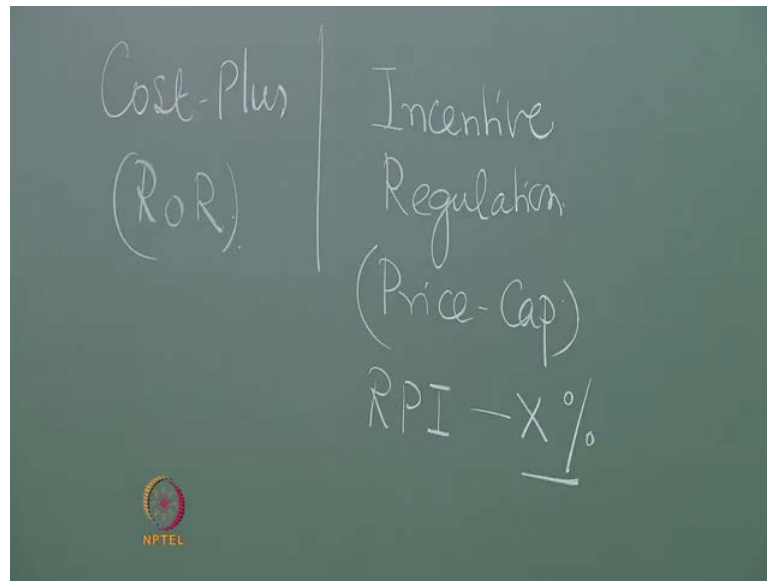 Cost-Plus
(RoR).
Incentive
Regulation
(Price-Cap)
RPI - X %
NPTEL